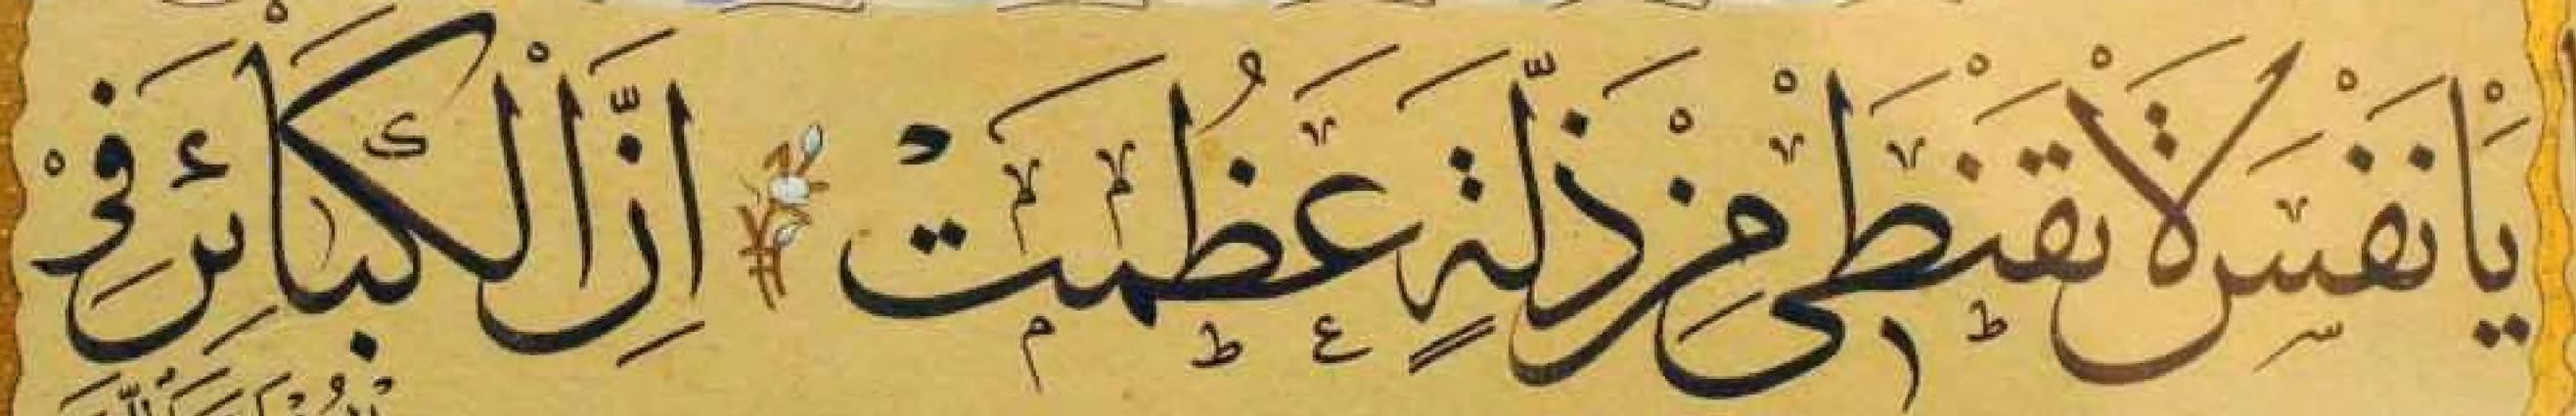 يَا نَفْسِ لَا تَقْنَطِي مِنْ ذَلَّةٍ عَظُمَتْ إِنَّ الْكَبَائِرَ فِي